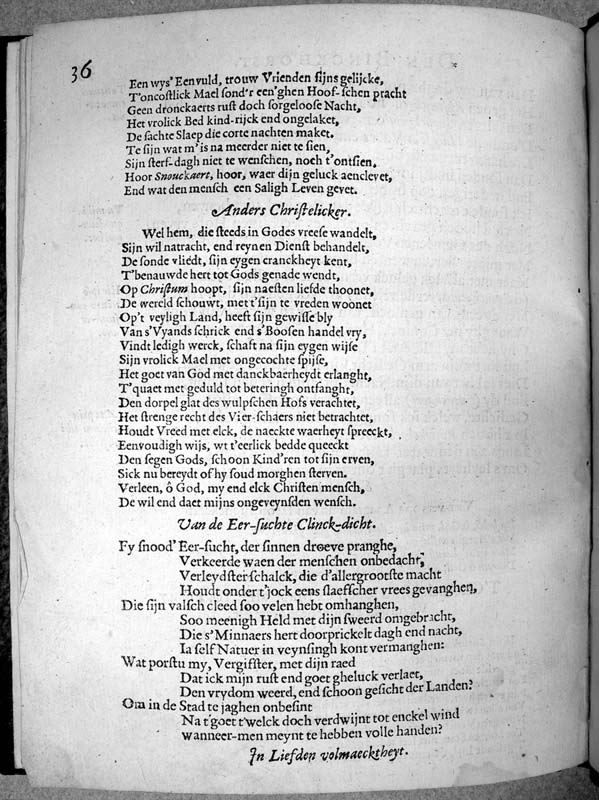 36
Een wys' Eenvuld, trouw Vrienden sijns gelijcke,
T'oncostlick Mael sond'r een'ghen Hoof-schen pracht
Geen dronckaerts rust doch sorgeloose Nacht,
Het vrolick Bed kind-rijck end ongelaket,
De sachte Slaep die corte nachten maket.
Te sijn wat m'is na meerder niet te sien,
Sijn sterf-dagh niet te wenschen, noch t'ontsien.
Hoor Snouckaert, hoor, waer dijn geluck aenclevet,
End wat den mensch een Saligh Leven gevet.
Anders Christelicker.
Wel hem, die steeds in Godes vreese wandelt,
Sijn wil natracht, end reynen Dienst behandelt,
De sonde vliedt, sijn eygen cranckheyt kent,
T'benauwde hert tot Gods genade wendt,
Op Christum hoopt, sijn naesten liefde thoonet,
De wereld schouwt, met t'sijn te vreden woonet
Op't veyligh Land, heeft sijn gewisse bly
Van s'Vyands schrick end s'Boosen handel vry,
Vindt ledigh werck, schaft na sijn eygen wijse
Sijn vrolick Mael met ongecochte spijse,
Het goet van God met danckbaerheydt erlanght,
T'quaet met geduld tot beteringh ontfanght,
Den dorpel glat des wulpschen Hofs verachtet,
Het strenge recht des Vier-schaers niet betrachtet,
Houdt Vreed met elck, de naeckte waerheyt spreeckt,
Eenvoudigh wijs, wt t'eerlick bedde queeckt
Den segen Gods, schoon Kind'ren tot sijn erven,
Sick nu bereydt of hy soud morghen sterven.
Verleen, ô God, my end elck Christen mensch,
De wil end daet mijns ongeveynsden wensch.
Van de Eer-suchte Clinck-dicht.
Fy snood' Eer-sucht, der sinnen droeve pranghe,
Verkeerde waen der menschen onbedacht,
Verleydster schalck, die d'allergrootste macht
Houdt onder t'jock eens slaefscher vrees gevanghen,
Die sijn valsch cleed soo velen hebt omhanghen,
Soo meenigh Held met dijn sweerd omgebracht,
Die s'Minnaers hert doorprickelt dagh end nacht,
Ia self Natuer in veynsingh kont vermanghen:
Wat porstu my, Vergifster, met dijn raed
Dat ick mijn rust end goet gheluck verlaet,
Den vrydom weerd, end schoon gesicht der Landen?
Om in de Stad te jaghen onbesint
Na t'goet t'welck doch verdwijnt tot enckel wind
wanneer-men meynt te hebben volle handen?
In Liefden volmaecktheyt.